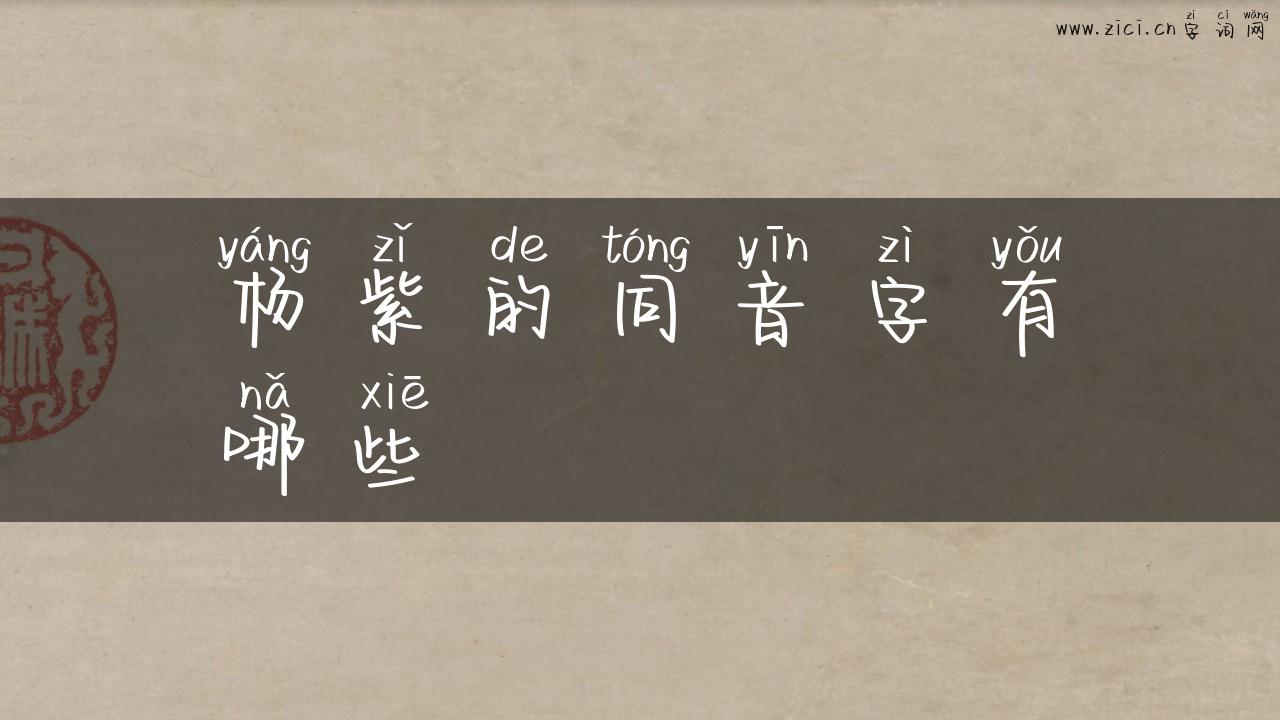 zì cí wǎng
www.zici.cn 字词网
yáng zǐ de tóng yīn zì yǒu
杨紫的同音字有
nǎ xiē
哪些